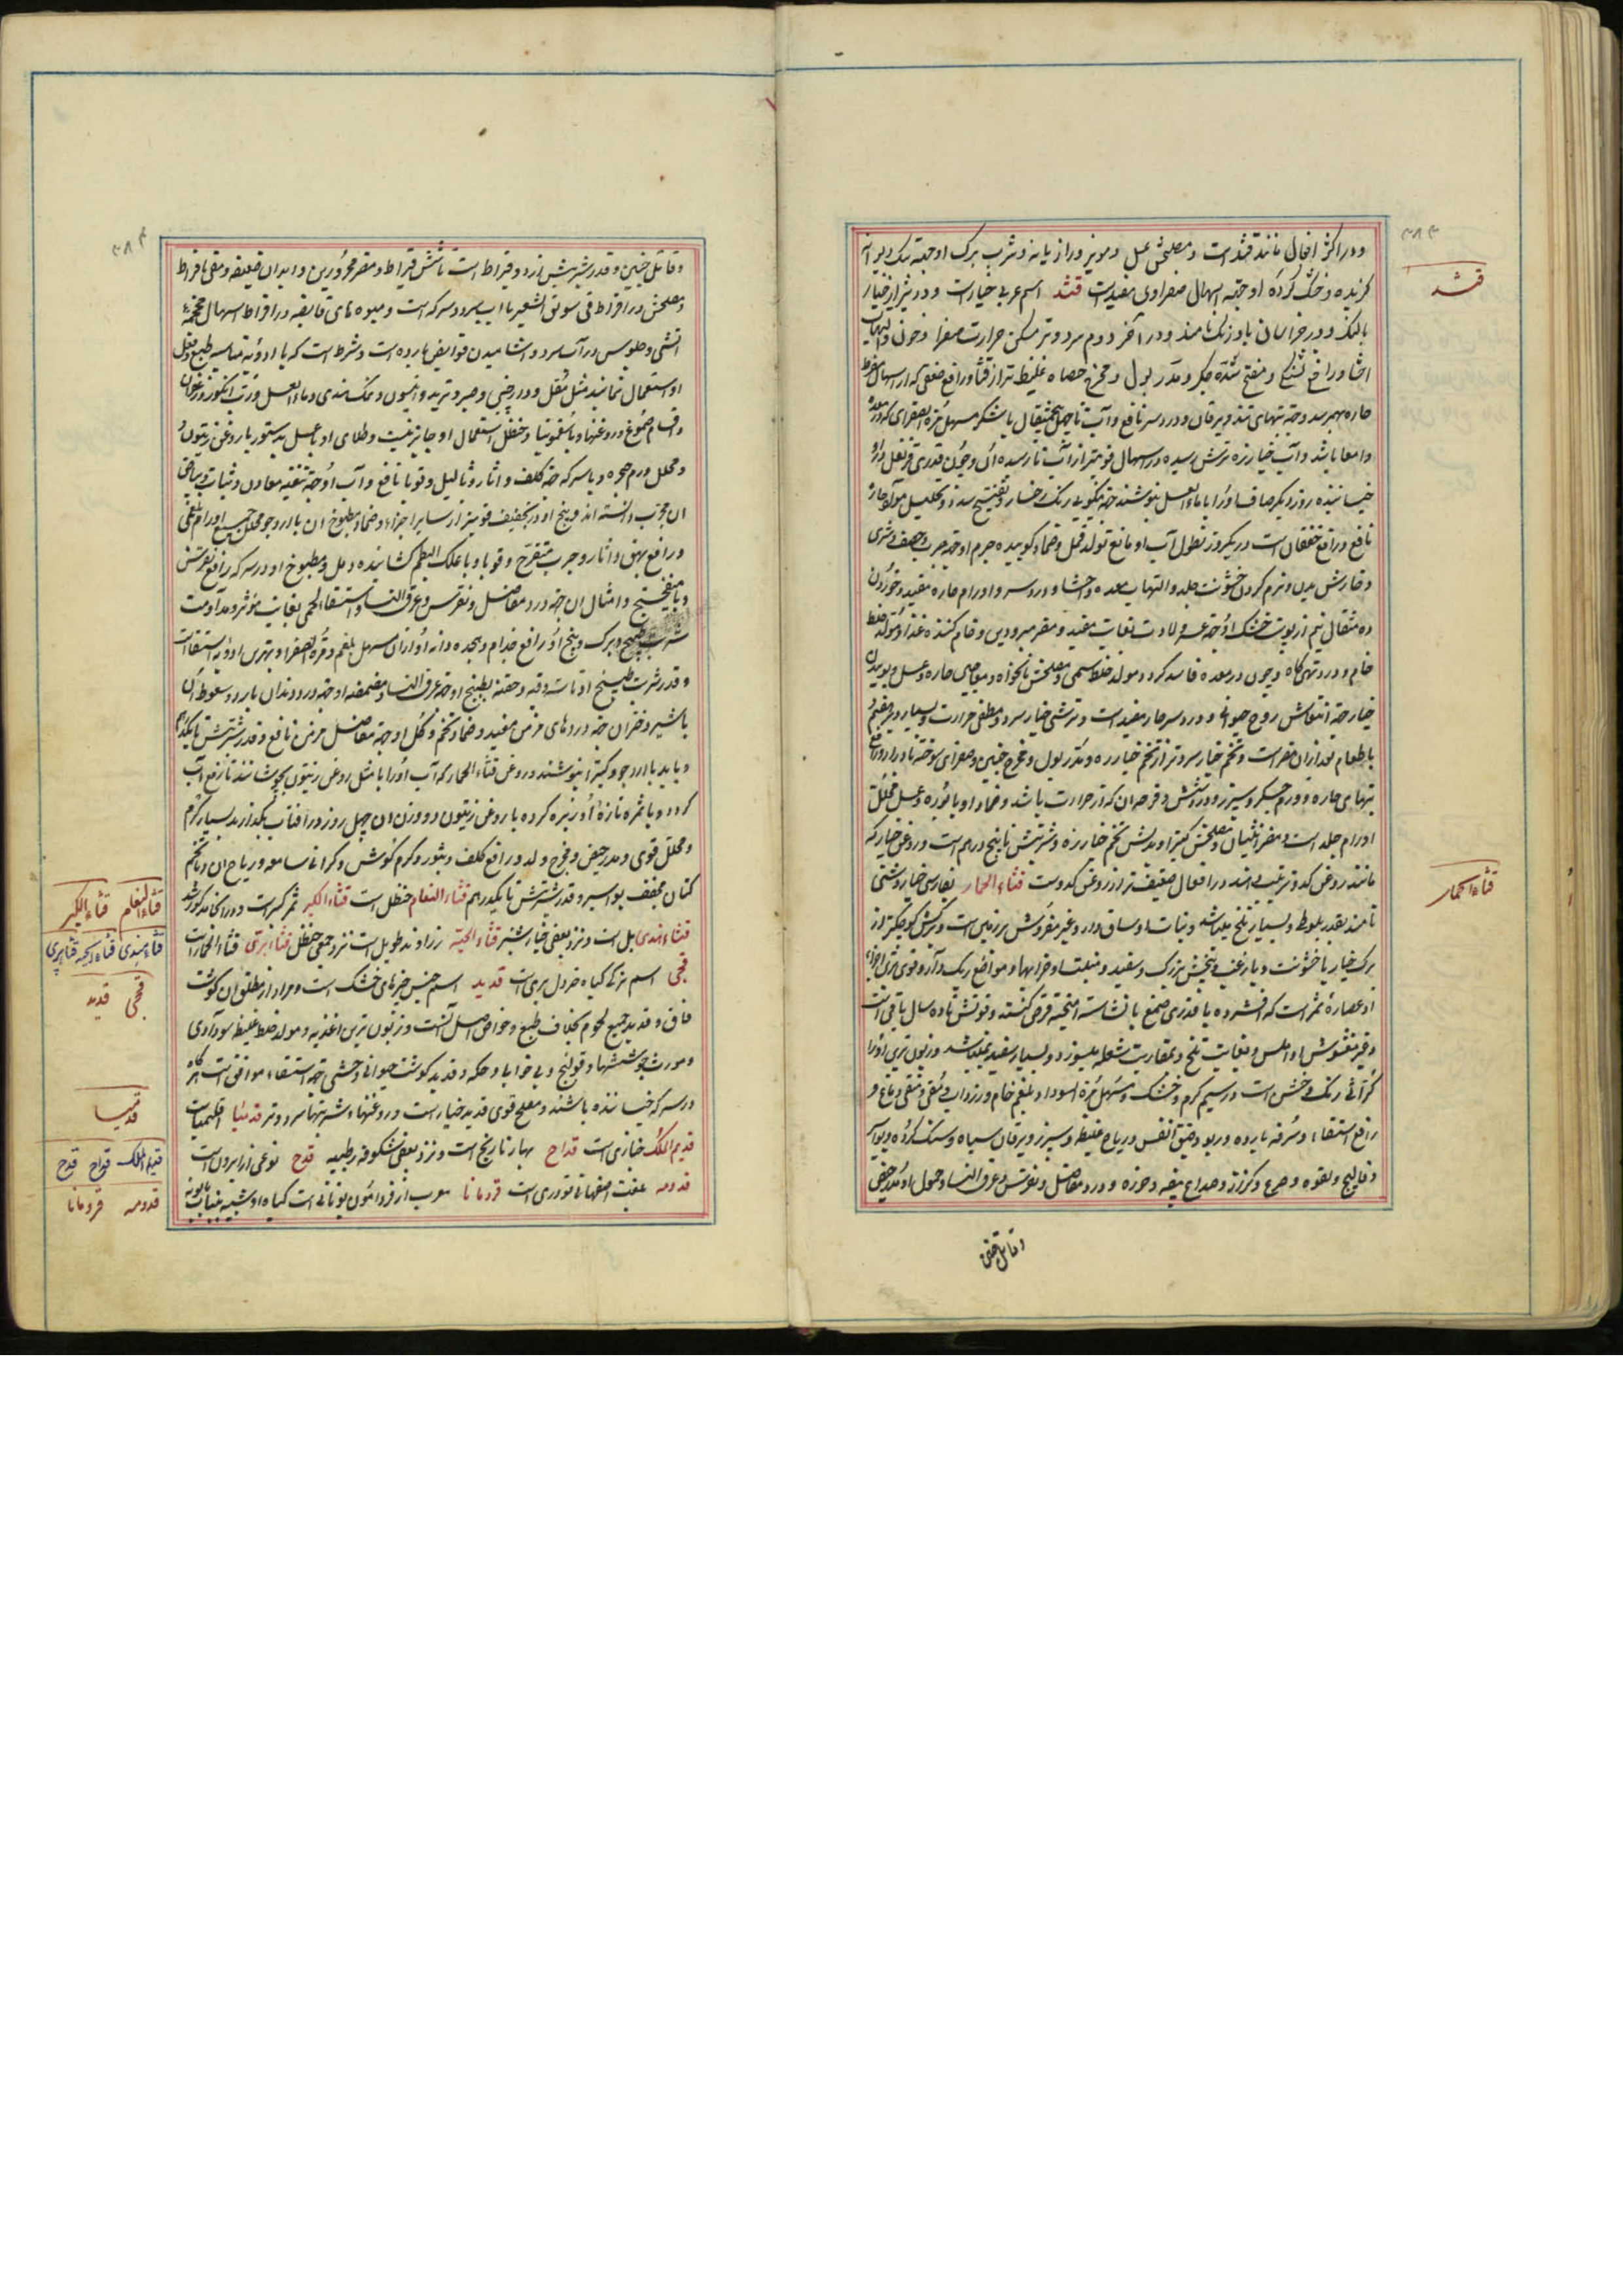 ۳۸۳
ودر اکثر افعال مانند قثد است و مصلحش عسل و مویز و رازیانه و شرب برک او جهة سک دیوانه
کزیده و خشک کرده او جهة اسهال صفراوی مفید است قثد اسم عربی خیار است و در شیراز خیار
بالنک و در خراسان بادرنک نامند و در آخر دوم سرد و تر مسکن حرارت صفرا و خون والتهاب
احشا و رافع تشنکی و مفتح سده جکر و مدر بول و مخرج حصاه غلیظ تر از قثا و رافع ضعفی که از اسهال مفرط
حاره بهم رسد و جهة تبهای تند و یرقان و درد سر نافع و آب او تا چهل مثقال با شکر مسهل مرة الصفرای که در معده
و امعا باشد و آب خیار زه ترش رسیده در اسهال قویتر از آب نارسیده آن و چون قدری قرنفل در او
خیسانیده روز دیکر صاف او را با ماءالعسل بنوشند جهة نیکویی رنک رخسار و تفتیح سدد و تحلیل مواد حاره
نافع و رافع خفقان است در یکروز نطول آب او مانع تولد قمل و ضماد کوبیده جرم او جهة جرب و حصف و شری
و خارش بدن و نرم کردن خشونت جلد و التهاب معده و احشا و درد سر و اورام حاره مفید و خوردن
ده مثقال نیم از پوست خشک او جهة عسر ولادت بغایت مفید و مضر مبرودین و خام کننده غذا و مولد خلط
خام و درد تهی کاه و چون در معده فاسد کردد مولد خلط سمی و مصلحش نانخواه و معاجین حاره و عسل و بوییدن
خیار جهة انتعاش روح حیوانی و درد سر حار مفید است و ترشی خیار سرد و مطفی حرارت و بسیار دیر هضم
با طعام بعد از آن مضر است و تخم خیار سردتر از تخم خیار زه و مدر بول و مخرج جنین و صفرای سوخته باد رار و رافع
تبهای حاره و ورم جکر و سپرز و درد شش و قرحه آن که از حرارت باشد و ضماد او با بوره و عسل محلل
اورام جلد است و مضر انثیان و مصلحش کتیرا و بدلش تخم خیار زه و شربتش تا پنج درهم است و روغن خیار که
مانند روغن کدو ترتیب دهند در افعال ضعیف تر از روغن کدوست قثاء الحمار بفارسی خیار دشتی
نامند بقدر بلوط و بسیار تلخ میباشد و نبات او ساق دار و غیر مفروش بر زمین است و برکش کوچکتر از
برک خیار با خشونت و با زغب و بیخش بزرک و سفید و منبت او خرابها و مواضع ریک دار و قوی ترین اجزاء
او عصاره ثمر است که افشرده با قدری صمغ یا نشاسته آمیخته قرص کنند و قوتش تا ده سال باقی است
و غیر مغشوش او املس و بغایت تلخ و بمقاربت شعله میسوزد و بسیار سفید نمیباشد و زبون ترین او را
کراثی رنک و خشن است در سیم کرم و خشک و مسهل مرة السودا و بلغم خام و زرداب و مقی و منقی دماغ و
رافع استسقاء و سرفه بارده و ربو و ضیق النفس و ریاح غلیظه و سپرز و یرقان سیاه و سنک کرده و بواسیر
و فالج و لقوه و صرع و کزاز و صداع بیضه و خوذه و درد مفاصل و نقرس و عرق النسا و حمول او مدر حیض
و قاتل جنین
قثد
قثاء الحمار
۳۸۴
و قاتل جنین و قدر شربتش از دو قیراط است تا شش قیراط و مضر محرورین و ابدان ضعیفه و مقی بافراط
و مصلحش در افراط قی سویق الشعیر با آب سرد و سرکه است و میوه های قابضه و در افراط اسهال محجمه
آتشی و جلوس در آب سرد و آشامیدن قوابض بارده است و شرط است که با ادویه مناسبه طبع و فعل
او استعمال نمایند مثل مقل و دارچینی و صبر و تربد و انیسون و نمک هندی و ماء العسل و رب انکور و زعفران
و اقسام صموغ و روغنها و با سقمونیا و حنظل استعمال او جایز نیست و طلای او با عسل بدستور با روغن زیتون
و محلل ورم حنجره و با سرکه جهة کلف و آثار و ثالیل و قوبا نافع و آب او جهة تنقیه
آن مجرب دانسته اند و بیخ او در تجفیف قویتر از سایر اجزاء و ضماد مطبوخ آن با آرد جو محلل جمیع اورام بلغمی
و رافع بهق و آثار و جرب متقرح و قوبا و با علک البطم کشاینده دمل و مطبوخ او در سرکه رافع نقرس
و با میفختج و امثال آن جهة درد مفاصل و نقرس و عرق النسا و استسقاء لحمی بغایت مؤثر و مداومت
شرب طبیخ و برک و بیخ او رافع جذام و هجده دانه او از آن مسهل بلغم و مرة الصفرا و بهترین ادویه استسقاست
و قدر شربت طبیخ او تا سه وقیه و حقنه بطبیخ او جهة عرق النسا و مضمضه او جهة درد دندان بارد و سعوط آن
با شیر دختران جهة دردهای مزمن مفید و ضماد تخم و کل او جهة مفاصل مزمن نافع و قدر شربتش تا یکدرهم
و باید با آرد جو و کتیرا بنوشند و روغن قثاء الحمار که آب او را با مثل روغن زیتون بجوشانند تا رفع آب
کردد و یا ثمره تازه او ریزه کرده با روغن زیتون دو وزن آن چهل روز در آفتاب بکذارند بسیار کرم
و محلل قوی و مدر حیض و مخرج ولد و رافع کلف و بثور و کرم کوش و کرانی سامعه و ریاح آن و با تخم
کتان مجفف بواسیر و قدر شربتش تا یکدرهم قثاء النعام حنظل است قثاء الکبر ثمر کبر است و در آنجا مذکور شد
قثاء هندی بل است و نزد بعضی خیار شنبر قثاء الحیة زراوند طویل است نزد جمعی حنظل قثاء بری قثاء الحمار است
قجی اسم ترکی کیاه خردل بری است قدید اسم جنس چیزهای خشک است و مراد از مطلق آن کوشت
قاق و قدید جمیع لحوم بخلاف طبع و خواص اصل آنست و زبون ترین اغذیه و مولد خلط غلیظ سوداوی
و مورث جوششها و قولنج و بی خوابی و حکه و قدید کوشت حیوانی وحشی جهة استسقاء موافق است هرکاه
در سرکه خیسانده باشند و مصلح قوی قدید خیار است و روغنها و شربتها سرد و تر قدمیا اقلیمیاست
قدیم الملک خبازی است قداح بهار نارنج است و نزد بعضی شکوفه رطبیه قدح نوعی از ایرون است
قدومه بلغت اصفهانی تودری است قردمانا معرب از قردامون یونانی است کیاه او شبیه بنبات بابونه
قثاء النعام قثاء الکبر
قثاء هندی قثاء الحیة قثا بری
قجی قدید
قدمیا
قدیم الملک قداح قدح
قدومه قردمانا